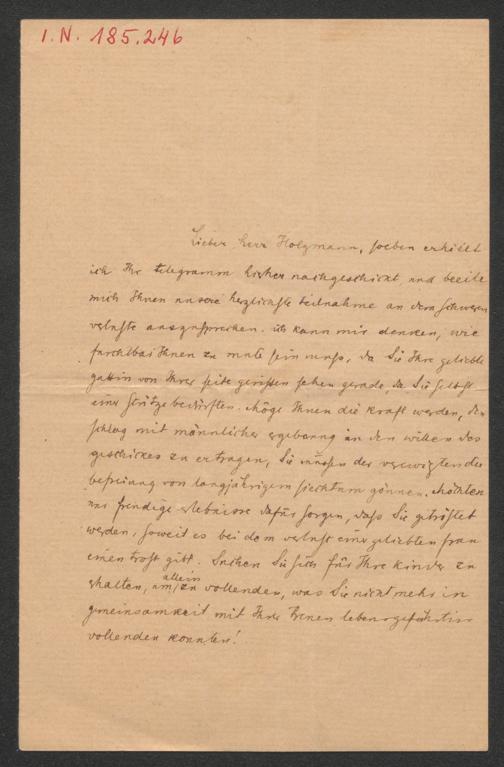 I.N. 185.246
Lieber Herr Holzmann, soeben erhielt
ich Ihr telegramm hieher nachgeschickt, und beeile
mich Ihnen unsere herzlichste teilnahme an dem schweren
verluste auszusprechen. ich kann mir denken, wie
furchtbar Ihnen zu mute sein muss, da Sie Ihre geliebte
gattin von Ihrer seite gerissen sehen gerade, da Sie selbst
einer stütze bedürften. Möge Ihnen die kraft werden, den
schlag mit männlicher ergebung in den willen des
geschickes zu ertragen, Sie müssen der verewigten die
befreiung von langjährigem siechtum gönnen. Möchten
nur freudige erlebnisse dafür sorgen, dass Sie getröstet
werden, soweit es bei dem verlust einer geliebten frau
einen trost gibt. Suchen Sie sich für Ihre kinder zu
erhalten, um allein zu vollenden, was Sie nicht mehr in
gemeinsamkeit mit Ihrer treuen lebensgefährtin
vollenden konnten!